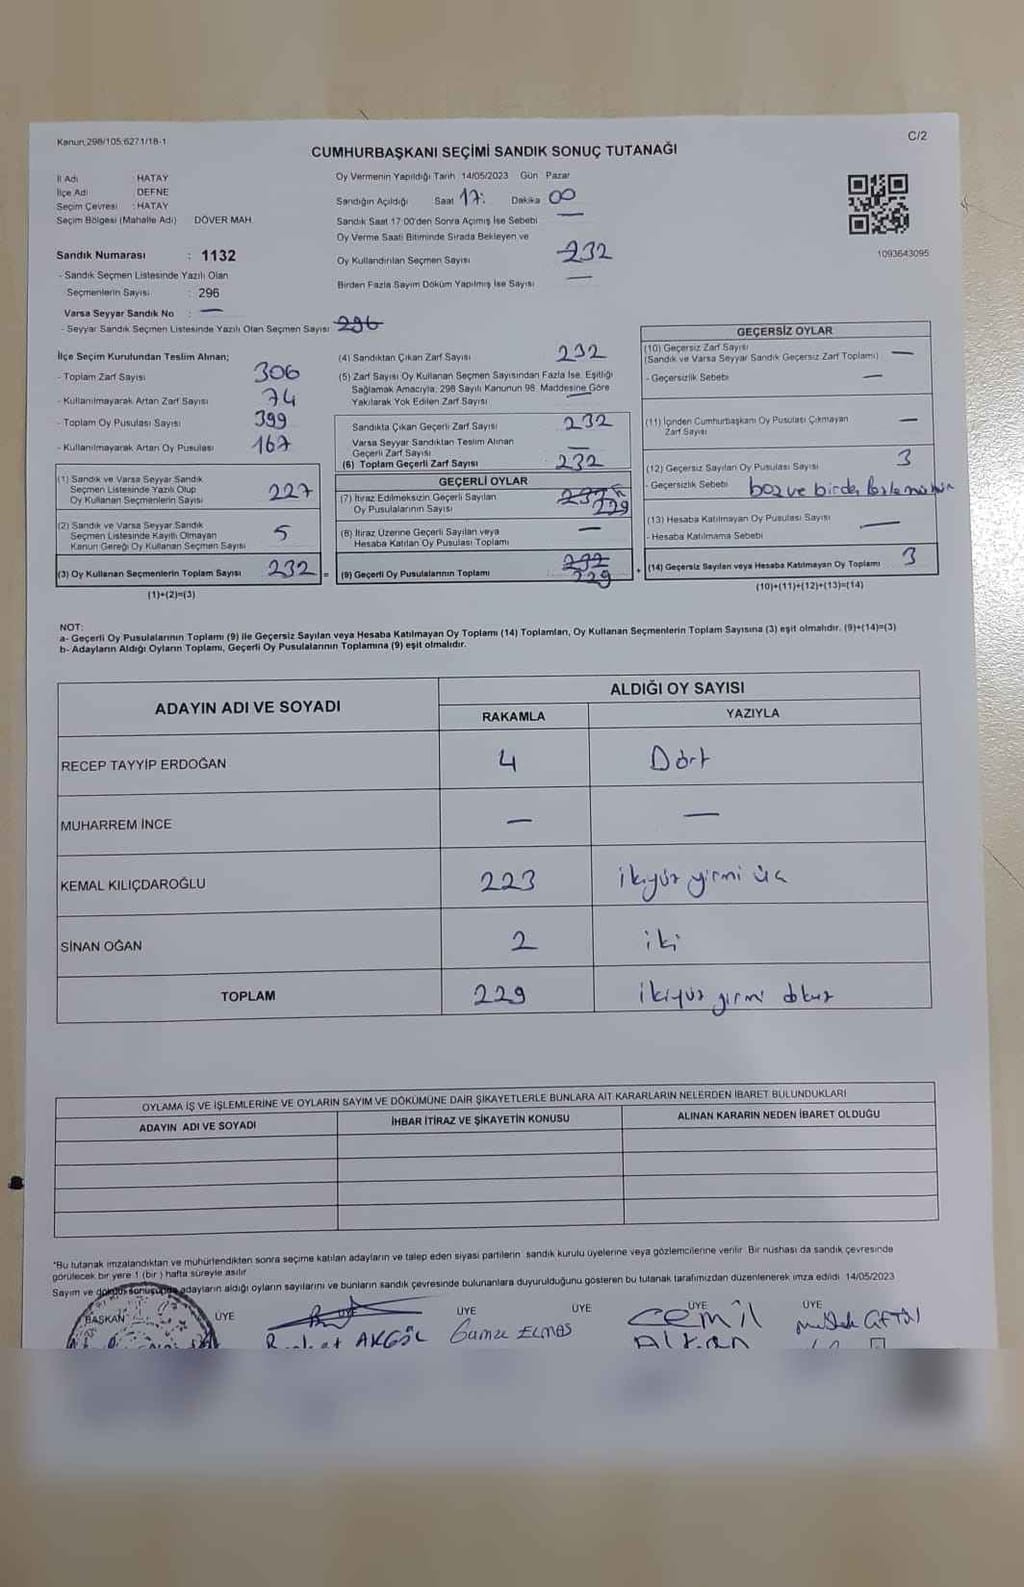 Kanun;298/105;6271/18-1
C/2
CUMHURBAŞKANI SEÇİMİ SANDIK SONUÇ TUTANAĞI
İl Adı : HATAY
İlçe Adı : DEFNE
Seçim Çevresi : HATAY
Seçim Bölgesi (Mahalle Adı) DÖVER MAH.
Oy Vermenin Yapıldığı Tarih 14/05/2023 Gün Pazar
Sandığın Açıldığı Saat 17: Dakika 00
Sandık Saat 17:00'den Sonra Açımış İse Sebebi —
Oy Verme Saati Bitiminde Sırada Bekleyen ve
Oy Kullandırılan Seçmen Sayısı 232
Birden Fazla Sayım Döküm Yapılmış İse Sayısı —
1093643095
Sandık Numarası : 1132
- Sandık Seçmen Listesinde Yazılı Olan
Seçmenlerin Sayısı : 296
Varsa Seyyar Sandık No : —
- Seyyar Sandık Seçmen Listesinde Yazılı Olan Seçmen Sayısı 296
İlçe Seçim Kurulundan Teslim Alınan;
- Toplam Zarf Sayısı 306
- Kullanılmayarak Artan Zarf Sayısı 74
- Toplam Oy Pusulası Sayısı 399
- Kullanılmayarak Artan Oy Pusulası 167
(1) Sandık ve Varsa Seyyar Sandık
Seçmen Listesinde Yazılı Olup
Oy Kullanan Seçmenlerin Sayısı 227
(2) Sandık ve Varsa Seyyar Sandık
Seçmen Listesinde Kayıtlı Olmayan
Kanun Gereği Oy Kullanan Seçmen Sayısı 5
(3) Oy Kullanan Seçmenlerin Toplam Sayısı 232 =
(1)+(2)=(3)
(4) Sandıktan Çıkan Zarf Sayısı 232
(5) Zarf Sayısı Oy Kullanan Seçmen Sayısından Fazla İse, Eşitliği
Sağlamak Amacıyla; 298 Sayılı Kanunun 98. Maddesine Göre
Yakılarak Yok Edilen Zarf Sayısı —
Sandıkta Çıkan Geçerli Zarf Sayısı 232
Varsa Seyyar Sandıktan Teslim Alınan
Geçerli Zarf Sayısı —
(6) Toplam Geçerli Zarf Sayısı 232
GEÇERLİ OYLAR
(7) İtiraz Edilmeksizin Geçerli Sayılan
Oy Pusulalarının Sayısı 232 229
(8) İtiraz Üzerine Geçerli Sayılan veya
Hesaba Katılan Oy Pusulası Toplamı —
(9) Geçerli Oy Pusulalarının Toplamı 232 229 +
GEÇERSİZ OYLAR
(10) Geçersiz Zarf Sayısı
(Sandık ve Varsa Seyyar Sandık Geçersiz Zarf Toplamı) —
- Geçersizlik Sebebi —
(11) İçinden Cumhurbaşkanı Oy Pusulası Çıkmayan
Zarf Sayısı —
(12) Geçersiz Sayılan Oy Pusulası Sayısı 3
- Geçersizlik Sebebi boş ve birden fazla mühür
(13) Hesaba Katılmayan Oy Pusulası Sayısı —
- Hesaba Katılmama Sebebi
(14) Geçersiz Sayılan veya Hesaba Katılmayan Oy Toplamı 3
(10)+(11)+(12)+(13)=(14)
NOT:
a- Geçerli Oy Pusulalarının Toplamı (9) ile Geçersiz Sayılan veya Hesaba Katılmayan Oy Toplamı (14) Toplamları, Oy Kullanan Seçmenlerin Toplam Sayısına (3) eşit olmalıdır. (9)+(14)=(3)
b- Adayların Aldığı Oyların Toplamı, Geçerli Oy Pusulalarının Toplamına (9) eşit olmalıdır.
ADAYIN ADI VE SOYADI
ALDIĞI OY SAYISI
RAKAMLA YAZIYLA
RECEP TAYYİP ERDOĞAN 4 Dört
MUHARREM İNCE — —
KEMAL KILIÇDAROĞLU 223 ikiyüz yirmi üç
SİNAN OĞAN 2 iki
TOPLAM 229 ikiyüz yirmi dokuz
OYLAMA İŞ VE İŞLEMLERİNE VE OYLARIN SAYIM VE DÖKÜMÜNE DAİR ŞİKAYETLERLE BUNLARA AİT KARARLARIN NELERDEN İBARET BULUNDUKLARI
ADAYIN ADI VE SOYADI İHBAR İTİRAZ VE ŞİKAYETİN KONUSU ALINAN KARARIN NEDEN İBARET OLDUĞU
*Bu tutanak imzalandıktan ve mühürlendikten sonra seçime katılan adayların ve talep eden siyasi partilerin sandık kurulu üyelerine veya gözlemcilerine verilir. Bir nüshası da sandık çevresinde
görülecek bir yere 1 (bir) hafta süreyle asılır.
Sayım ve döküm sonucunda adayların aldığı oyların sayılarını ve bunların sandık çevresinde bulunanlara duyurulduğunu gösteren bu tutanak tarafımızdan düzenlenerek imza edildi. 14/05/2023
BAŞKAN ÜYE ÜYE ÜYE ÜYE ÜYE ÜYE
AKGÖL Gamze ELMAS Cemil